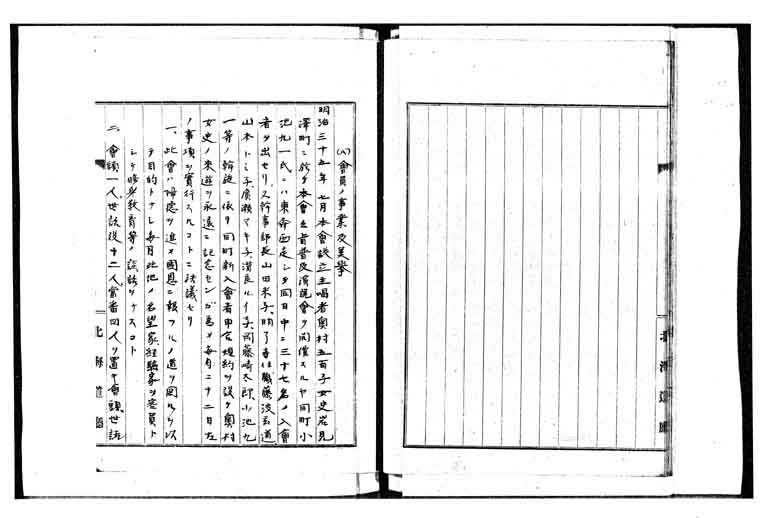 (八)會員ノ事業及美擧
明治三十五年七月本會設立主唱者奥村五百子女史岩見
澤町ニ於テ本會主旨普及演説會ヲ開催スルヤ同町小
池九一氏ニハ東奔西走シテ同日中ニ三十七名ノ入會
者ヲ出セリ又幹事部長山田米子明了寺住職藤波
山本トミ子廣瀬マキ子濱長ルイ子岡藤崎太郎小池九
一等ノ斡旋ニ依リ同町新入會者申合規約ヲ設ケ奥村
女史ノ來遊ヲ永遠ニ記念センガ爲メ毎月二十二日左
ノ事項ヲ實行スルコトニ決議セリ
一、此會ハ婦徳ヲ進メ國恩ニ報フルノ道ヲ圖ルヲ以
テ目的トナシ毎月此地ノ名望家經驗家ヲ客員ト
シテ時與教育等ノ談話ヲナスコト
二、會頭一人世話役十二人當番四人ヲ置キ會頭世話
北海道廳
北海道廳